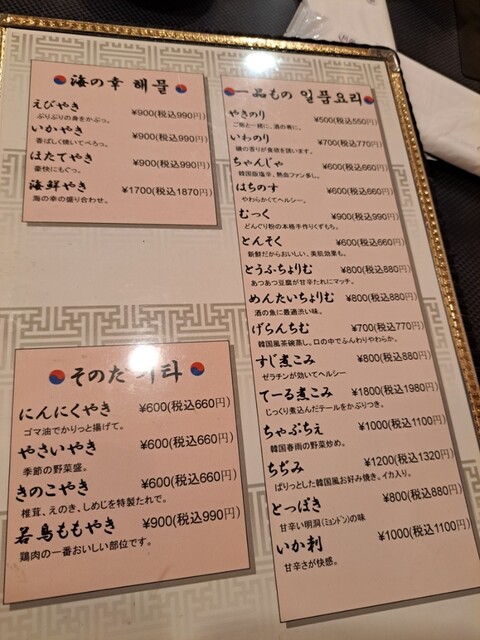 海の幸 해물
えびやき ¥900(税込990円)
ぷりぷりの身をかぶっ。
いかやき ¥900(税込990円)
香ばしく焼いてぺろっ。
ほたてやき ¥900(税込990円)
豪快にもぐっ。
海鮮やき ¥1700(税込1870円)
海の幸の盛り合わせ。
そのた 기타
にんにくやき ¥600(税込660円)
ゴマ油でかりっと揚げて。
やさいやき ¥600(税込660円)
季節の野菜盛。
きのこやき ¥600(税込660円)
椎茸、えのき、しめじを特製たれで。
若鳥ももやき ¥900(税込990円)
鶏肉の一番おいしい部位です。
一品もの 일품요리
やきのり ¥500(税込550円)
ご飯と一緒に、酒の肴に。
いわのり ¥700(税込770円)
磯の香りが食欲を誘います。
ちゃんじゃ ¥600(税込660円)
韓国版塩辛、熱血ファン多し。
はちのす ¥600(税込660円)
やわらかくてヘルシー。
むっく ¥900(税込990円)
どんぐり粉の本格手作りくずもち。
とんそく ¥600(税込660円)
新鮮だからおいしい、美肌効果も。
とうふちょりむ ¥800(税込880円)
あつあつ豆腐が甘辛たれにマッチ。
めんたいちょりむ ¥800(税込880円)
酒の魚に最適渋い味。
げらんちむ ¥700(税込770円)
韓国風茶碗蒸し、口の中でふんわりやわらか。
すじ煮こみ ¥800(税込880円)
ゼラチンが効いてヘルシー
てーる煮こみ ¥1800(税込1980円)
じっくり煮込んだテールをかぶりつき。
ちゃぷちぇ ¥1000(税込1100円)
韓国春雨の野菜炒め。
ちぢみ ¥1200(税込1320円)
ぱりっとした韓国風お好み焼き。イカ入り。
とっぽき ¥800(税込880円)
甘辛い明洞(ミョンドン)の味
いか刺 ¥1000(税込1100円)
甘辛さが快感。